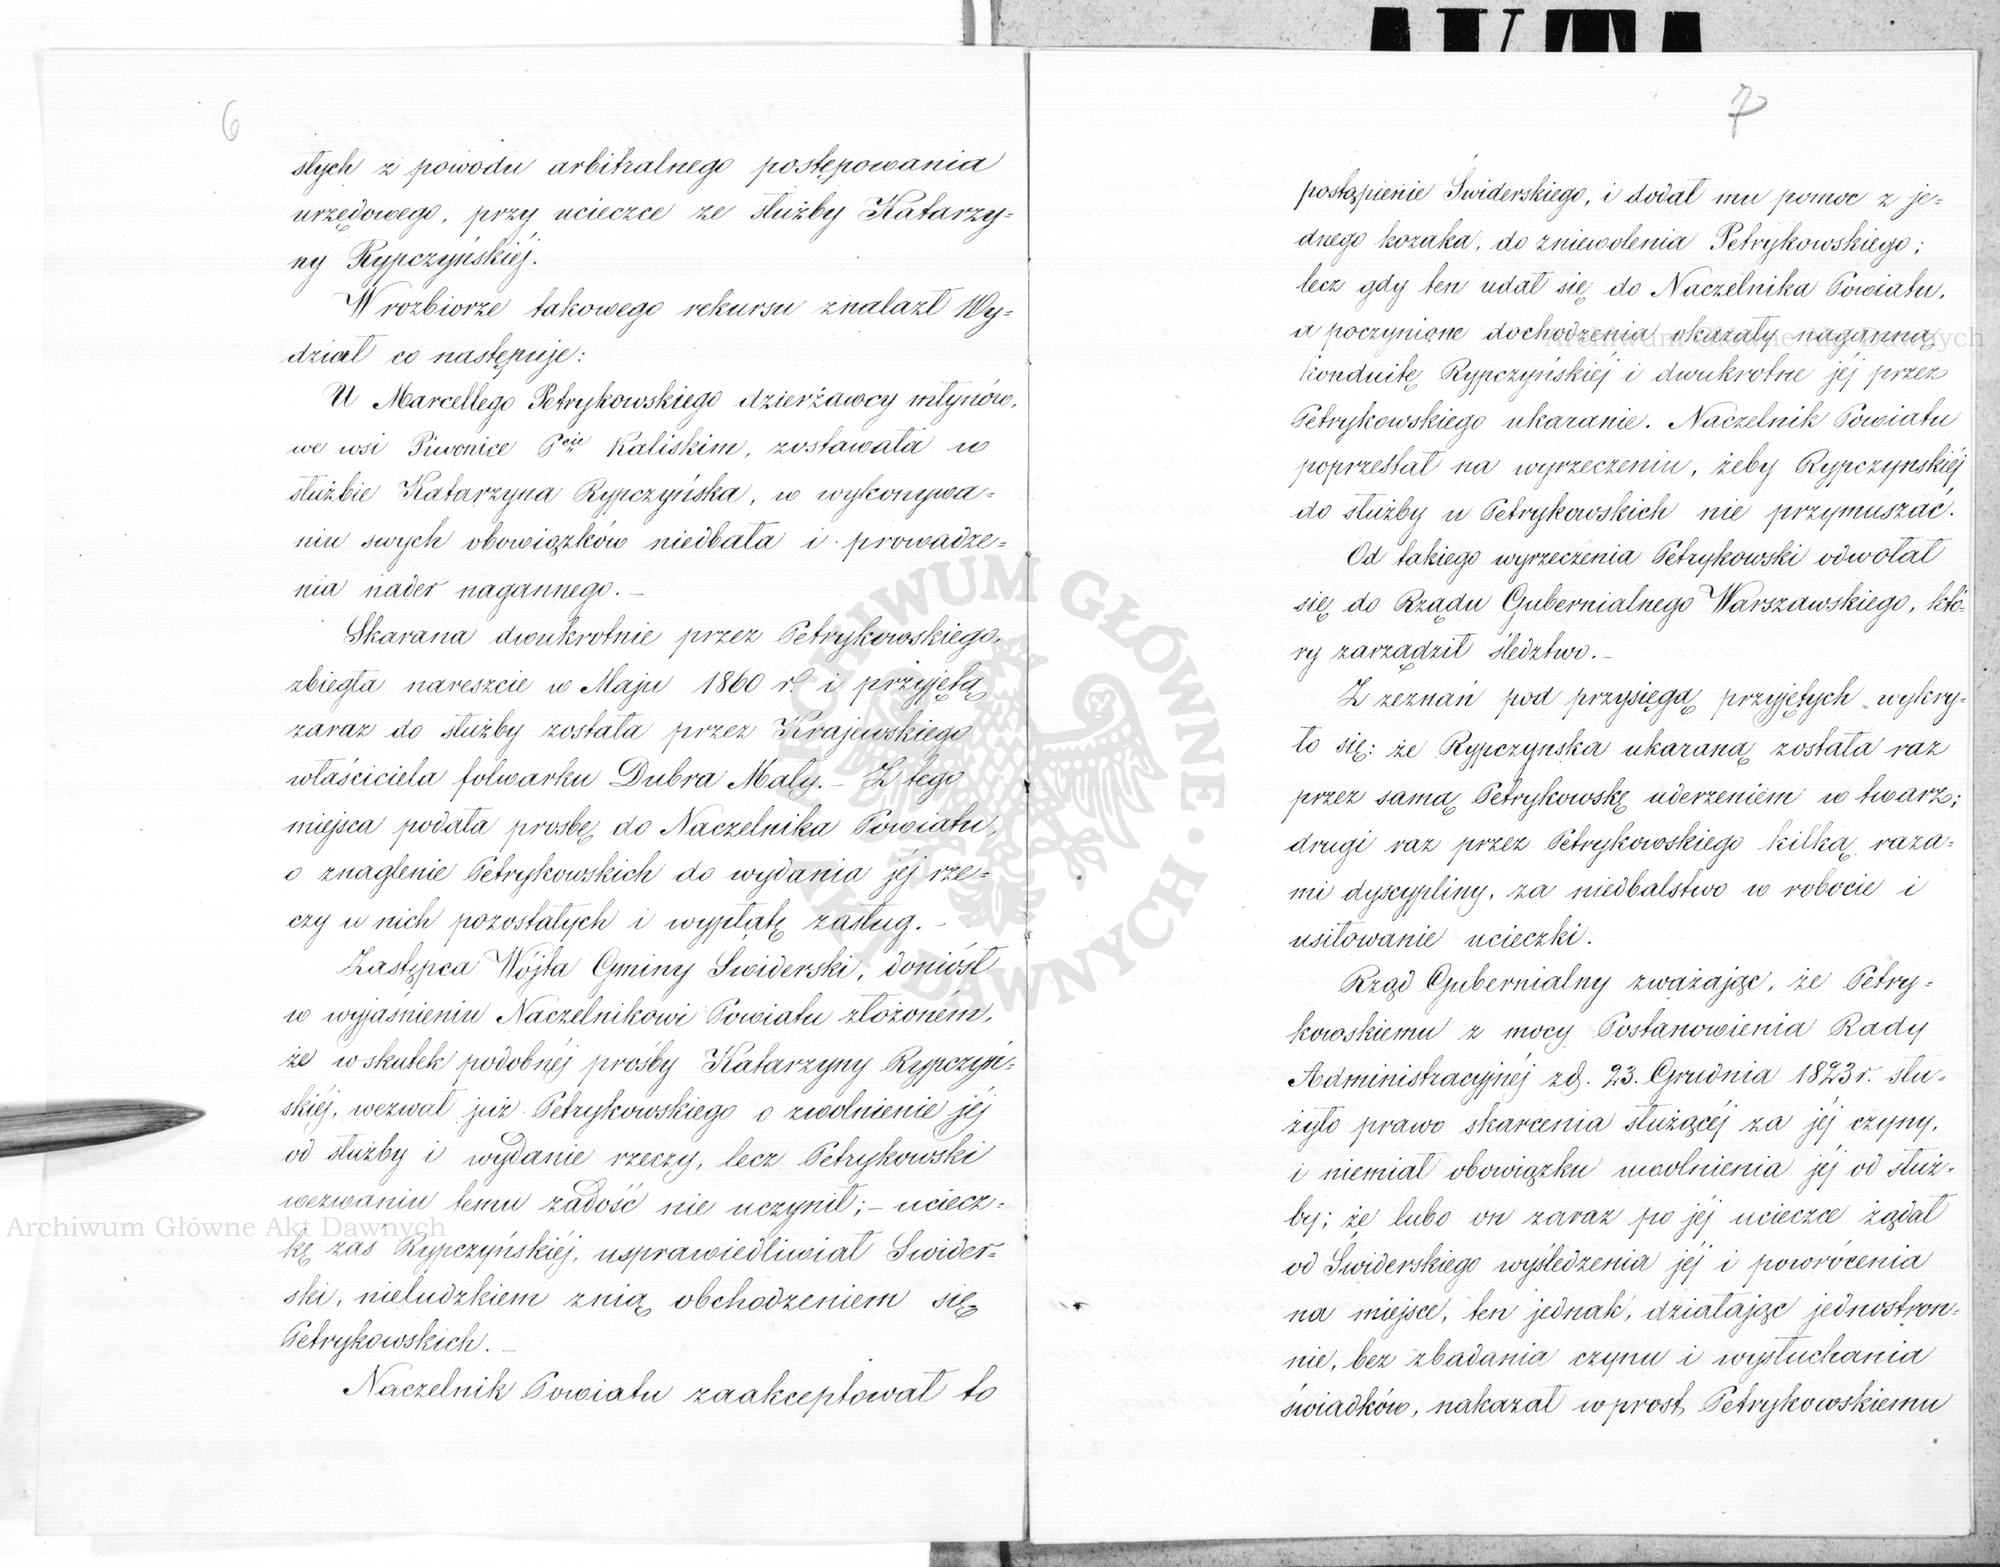 6
słych z powodu arbitralnego postępowania
urzędowego, przy ucieczce ze służby Katarzy-
ny Rypczyńskiéj.
W rozbiorze takowego rekursu znalazł Wy-
dział co następuje:
U Marcellego Petrykowskiego dzierżawcy młynów,
we wsi Piwonice Pcie Kaliskim, zostawała w
służbie Katarzyna Rypczyńska, w wykonywa-
niu swych obowiązków niedbała i prowadze-
nia nader nagannego. –
Skarana dwukrotnie przez Petrykowskiego,
zbiegła nareszcie w Maju 1860 r. i przyjętą
zaraz do służby została przez Krajewskiego
właściciela folwarku Dubra Mały. – Z tego
miejsca podała prosbę do Naczelnika Powiatu,
o znaglenie Petrykowskich do wydania jéj rze-
czy u nich pozostałych i wypłatę zasług. –
Zastępca Wójta Gminy Swiderski, doniósł
w wyjaśnieniu Naczelnikowi Powiatu złożoném,
że wskutek podobnéj prośby Katarzyny Rypczyń-
skiéj, wezwał już Petrykowskiego o zwolnienie jéj
od służby i wydanie rzeczy, lecz Petrykowski
wezwaniu temu zadość nie uczynił; – uciecz-
kę zas Rypczyńskiéj, usprawiedliwiał Swider-
ski, nieludzkiem znią obchodzeniem się
Petrykowskich. –
Naczelnik Powiatu zaakceptował to
7
postąpienie Świderskiego, i dodał mu pomoc z je-
dnego kozaka, do zniewolenia Petrykowskiego;
lecz gdy ten udał się do Naczelnika Powiatu,
a poczynione dochodzenia okazały naganną
konduitę Rypczyńskiéj i dwukrotne jéj przez
Petrykowskiego ukaranie. Naczelnik Powiatu
poprzestał na wyrzeczeniu, żeby Rypczynskiéj
do służby u Petrykowskich nie przymuszać.
Od takiego wyrzeczenia Petrykowski odwołał
się do Rządu Gubernialnego Warszawskiego, któ-
ry zarządził śledztwo. –
Z zeznań pod przysięgą przyjętych wykry-
to się: że Rypczynska ukaraną została raz
przez samą Petrykowskę uderzeniem w twarz;
drugi raz przez Petrykowskiego kilką raza-
mi dyscypliny, za niedbalstwo w robocie i
usiłowanie ucieczki.
Rząd Gubernialny zważając, że Petry-
kowskiemu z mocy Postanowienia Rady
Administracyjnéj zd. 23. Grudnia 1823 r. słu-
żyło prawo skarcenia służącéj za jéj czyny,
i niemiał obowiązku uwolnienia jéj od służ-
by; że lubo on zaraz po jéj ucieczce żądał
od Świderskiego wyśledzenia jéj i powrócenia
na miejsce, ten jednak, działając jednostron-
nie, bez zbadania czynu i wysłuchania
świadków, nakazał wprost Petrykowskiemu
Archiwum Główne Akt Dawnych
Archiwum Główne Akt Dawnych
ARCHIWUM GŁÓWNE AKT DAWNYCH